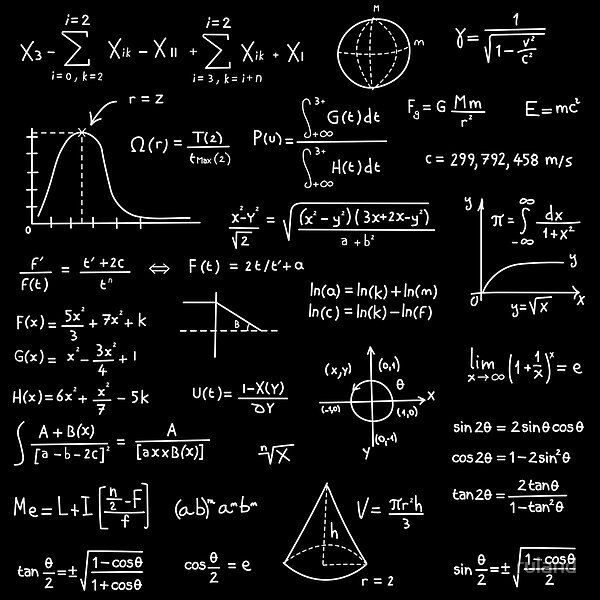 i=2 i=2
X₃ - ∑ Xᵢₖ - X₁₁ + ∑ Xᵢₖ + X₁
i=0, k=2 i=3, k=i+n
M
m
γ = 1/√(1 - v²/c²)
r = z
Ω(r) = T(z)/tMax(z)
P(u) = ∫₊∞³⁺ G(t)dt / ∫₊∞³⁺ H(t)dt
Fg = G Mm/r²
E=mc²
c = 299,792,458 m/s
0
(x²-Y²)/√2 = √((x²-y²)(3x+2x-y²)/(a+b²))
y
π = ∫₋∞^∞ dx/(1+x²)
y
0 y=√x x
F'/F(t) = (t'+2c)/tⁿ ⇔ F(t) = 2t/t'+a
ln(a) = ln(k)+ln(m)
ln(c) = ln(k)-ln(F)
F(x) = 5x²/3 + 7x² + k
G(x) = x² - 3x²/4 + 1
B
H(x) = 6x² + x²/7 - 5k
U(t) = (1-X(Y))/∂Y
(x,y) (0,1)
θ
(-1,0) (1,0) x
(0,-1)
y
lim x→∞ (1+1/x)ˣ = e
∫ (A+B(x))/[a-b-2c]² = A/[axxB(x)]
ⁿ√X
sin2θ = 2sinθcosθ
cos2θ = 1-2sin²θ
tan2θ = 2tanθ/(1-tan²θ)
Me = L+I [(n/2 - F)/f]
(ab)ᵐ aᵐbᵐ
h
V = πr²h/3
r = 2
tan θ/2 = ±√((1-cosθ)/(1+cosθ))
cos θ/2 = e
sin θ/2 = ±√((1-cosθ)/2)